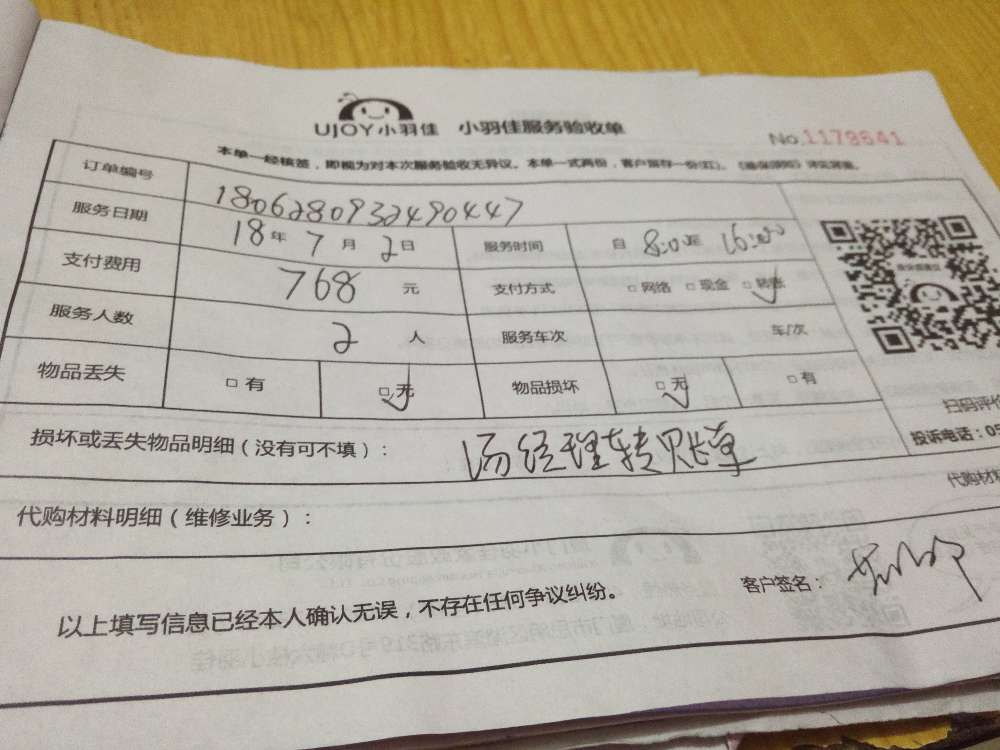 UJOY小羽佳 小羽佳服务验收单
No.1179641
本单一经核签，即视为对本次服务验收无异议。本单一式两份，客户留存一份
订单编号 1806280932490447
服务日期 18年7月2日 服务时间 自8:00至16:00
支付费用 768 元 支付方式 □网络 □现金 □转账
服务人数 2 人 服务车次 车/次
物品丢失 □有 □无 物品损坏 □无 □有
扫码评价
损坏或丢失物品明细（没有可不填）： 汤经理转账单
投诉电话：05
代购材料明细（维修业务）：
代购材料
以上填写信息已经本人确认无误，不存在任何争议纠纷。 客户签名：